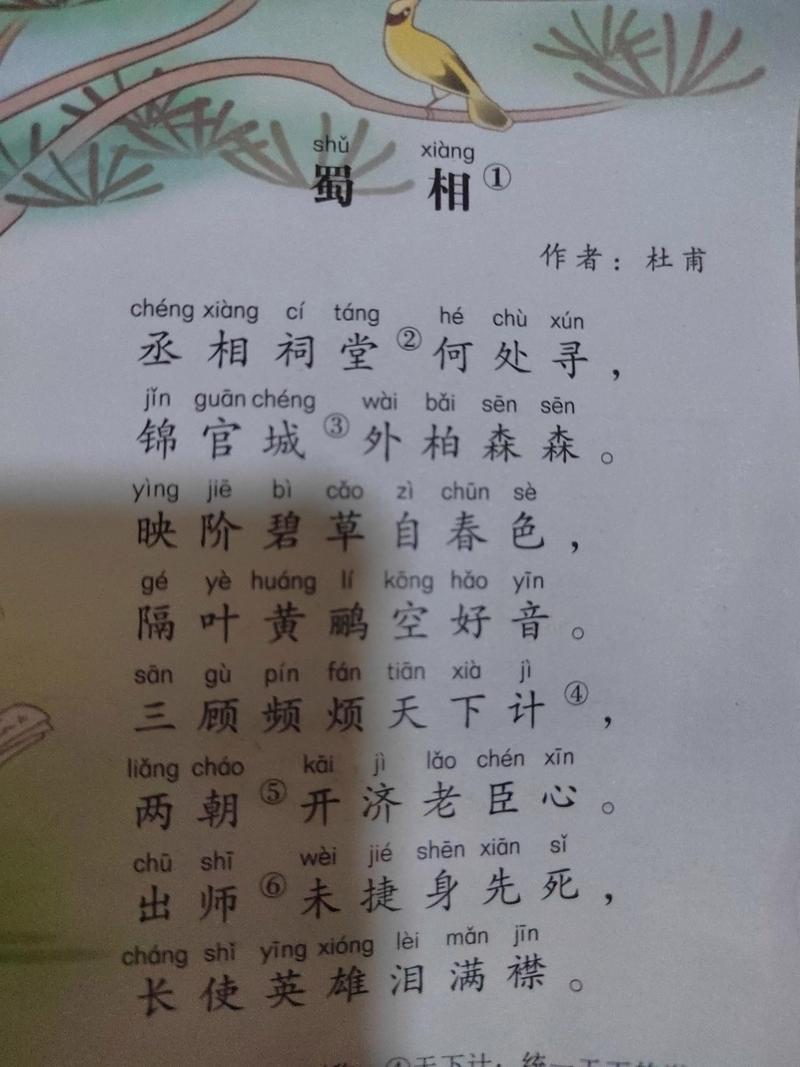 shǔ xiàng
蜀相①
作者：杜甫
chéng xiàng cí táng hé chù xún
丞相祠堂②何处寻，
jǐn guān chéng wài bǎi sēn sēn
锦官城③外柏森森。
yìng jiē bì cǎo zì chūn sè
映阶碧草自春色，
gé yè huáng lí kōng hǎo yīn
隔叶黄鹂空好音。
sān gù pín fán tiān xià jì
三顾频烦天下计④，
liǎng cháo kāi jì lǎo chén xīn
两朝⑤开济老臣心。
chū shī wèi jié shēn xiān sǐ
出师⑥未捷身先死，
cháng shǐ yīng xióng lèi mǎn jīn
长使英雄泪满襟。
④天下计：统一天下的